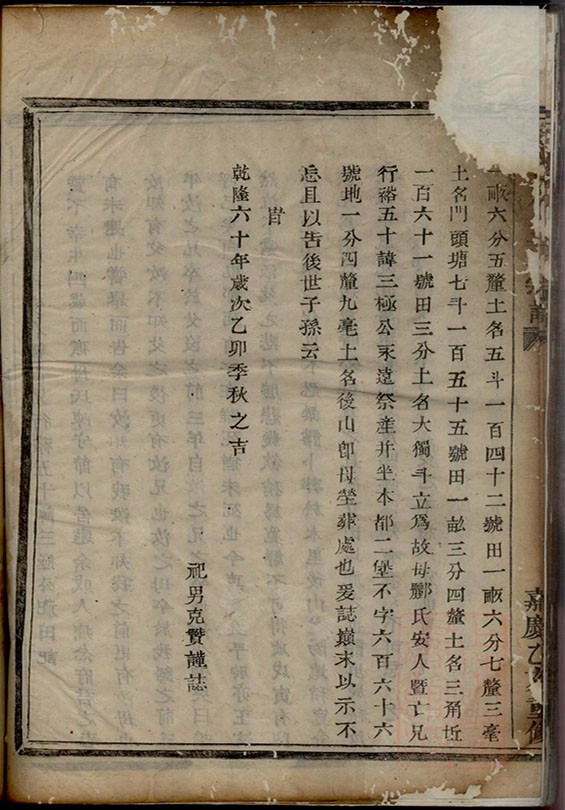 一畝六分五釐土名五斗一百四十二號田一畝六分七釐三毫
土名門頭塘七斗一百五十五號田一畝三分四釐土名三角坵
一百六十一號田三分土名大獨斗立爲故母酈氏安人暨亡兄
行裕五十諱三極公永遠祭產并坐本都二堡不字六百六十六
號地一分四釐九毫土名後山卽母塋葬處也爰誌巔末以示不
忘且以告後世子孫云
旹
乾隆六十年歲次乙卯季秋之吉
祀男克贊謹誌
嘉慶乙重修